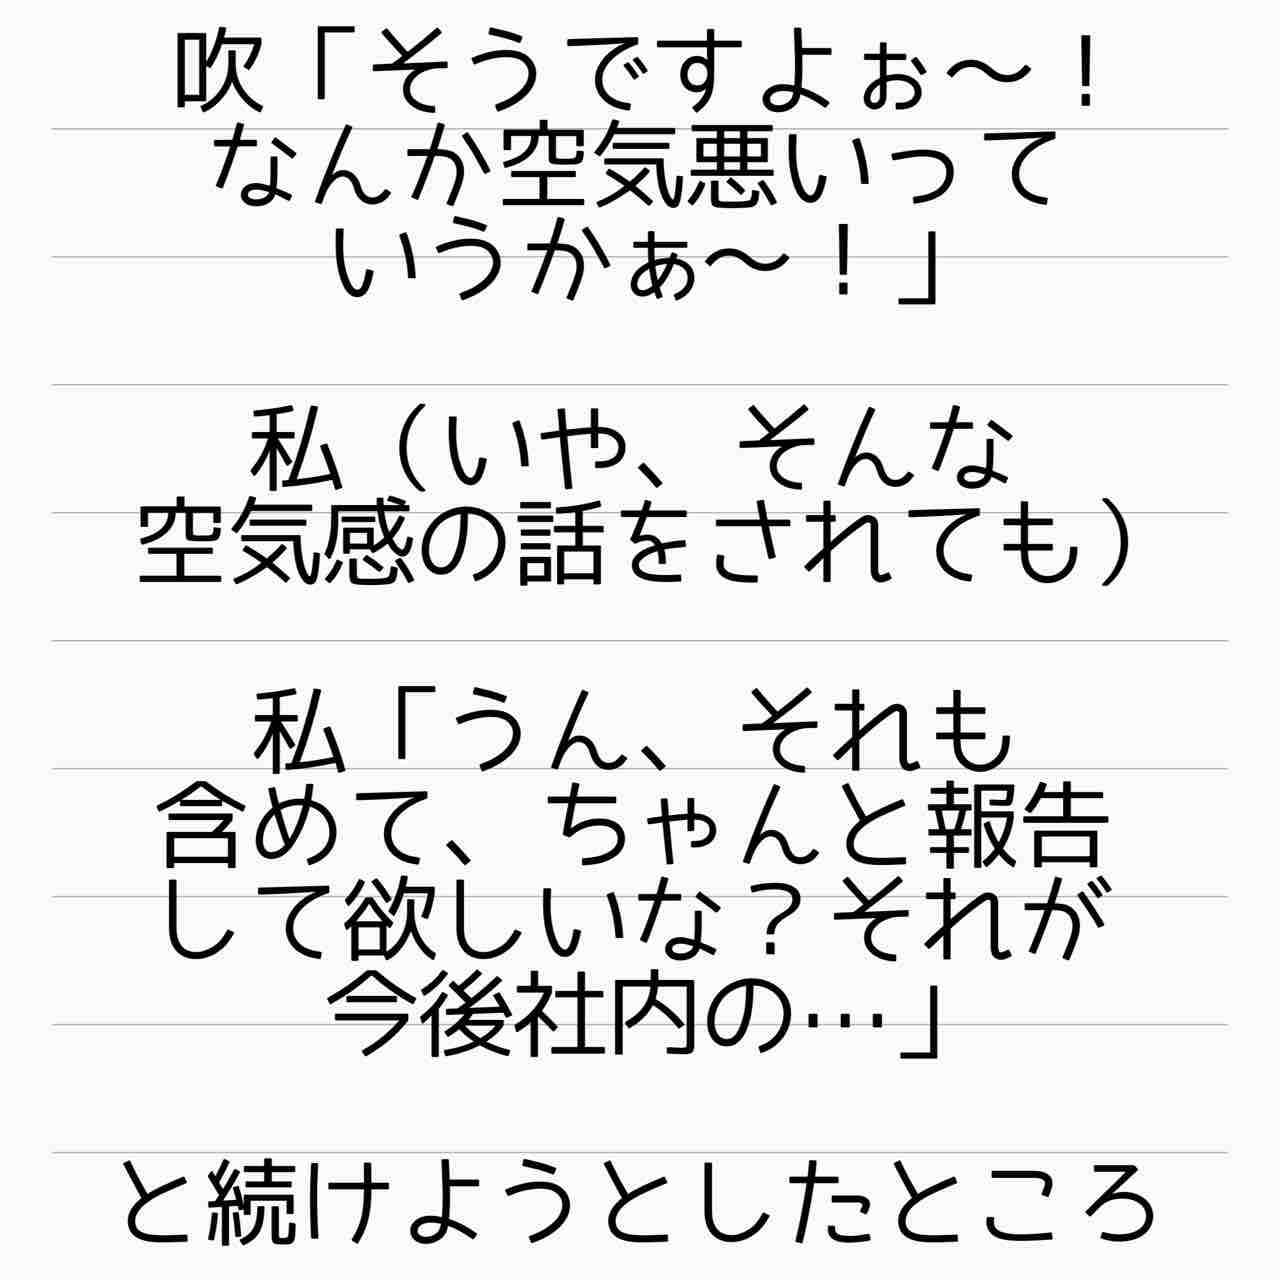 吹「そうですよぉ〜！
なんか空気悪いって
いうかぁ〜！」
私（いや、そんな
空気感の話をされても）
私「うん、それも
含めて、ちゃんと報告
して欲しいな？それが
今後社内の…」
と続けようとしたところ